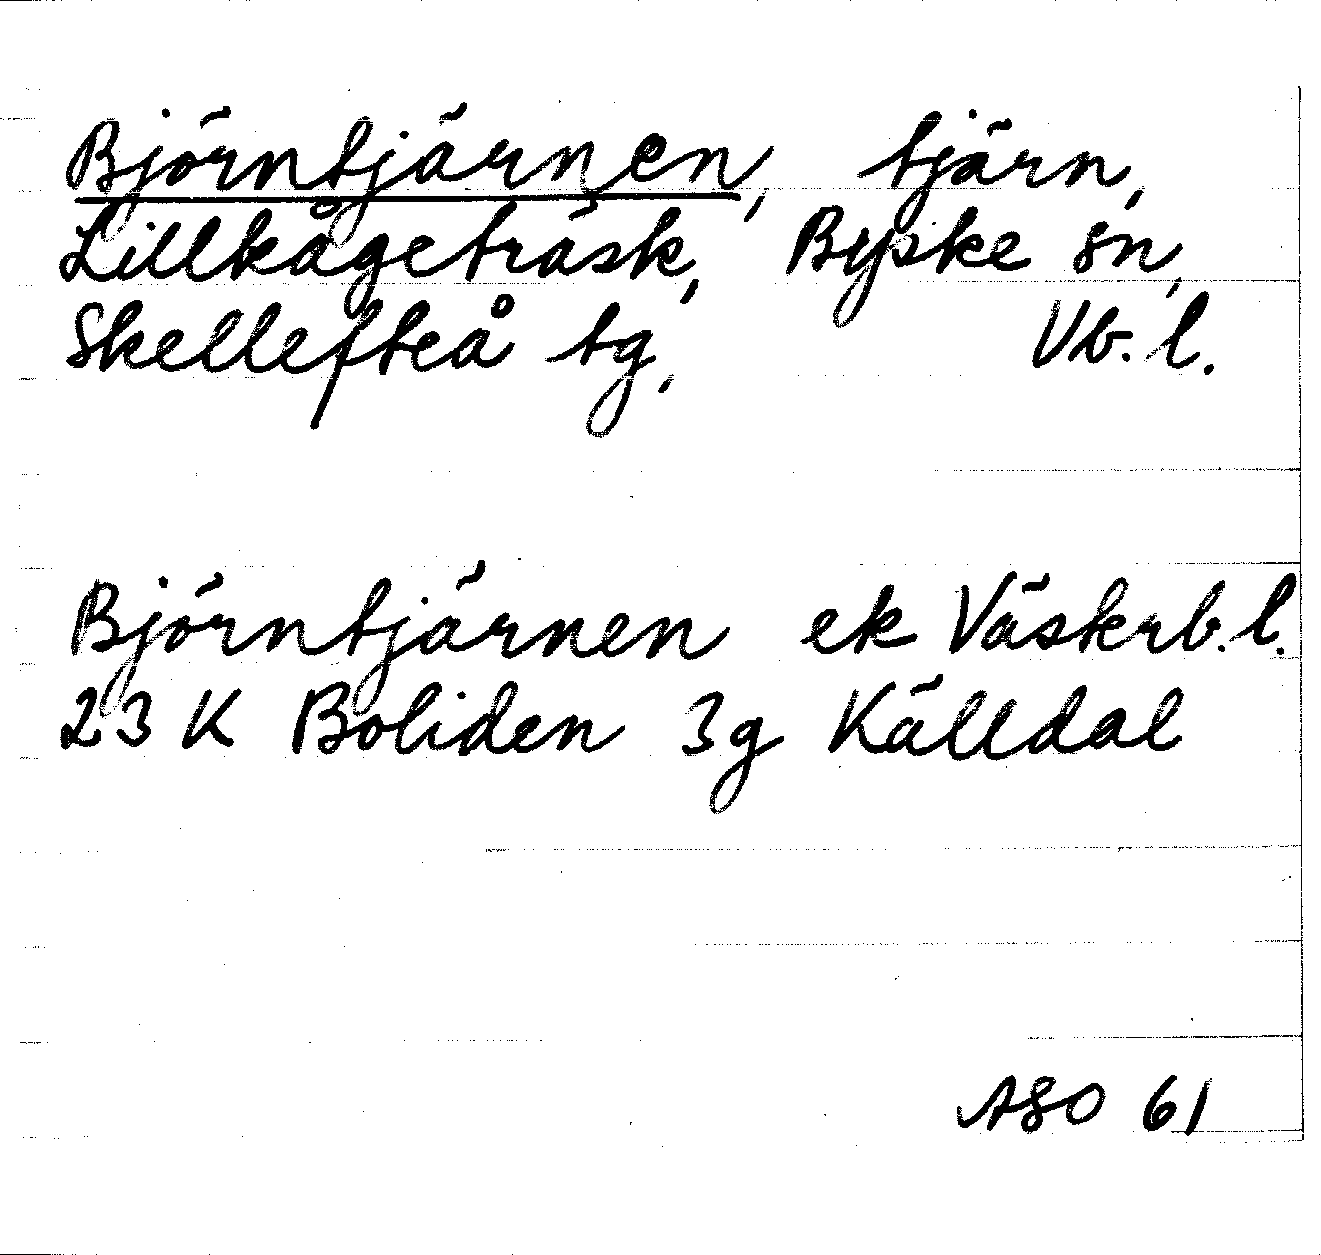 Björntjärnen, tjärn,
Lillkågeträsk, Byske sn,
Skellefteå tg, Vb. l.
Björntjärnen ek Västerb. l.
23 K Boliden 3g Källdal
ASO 61